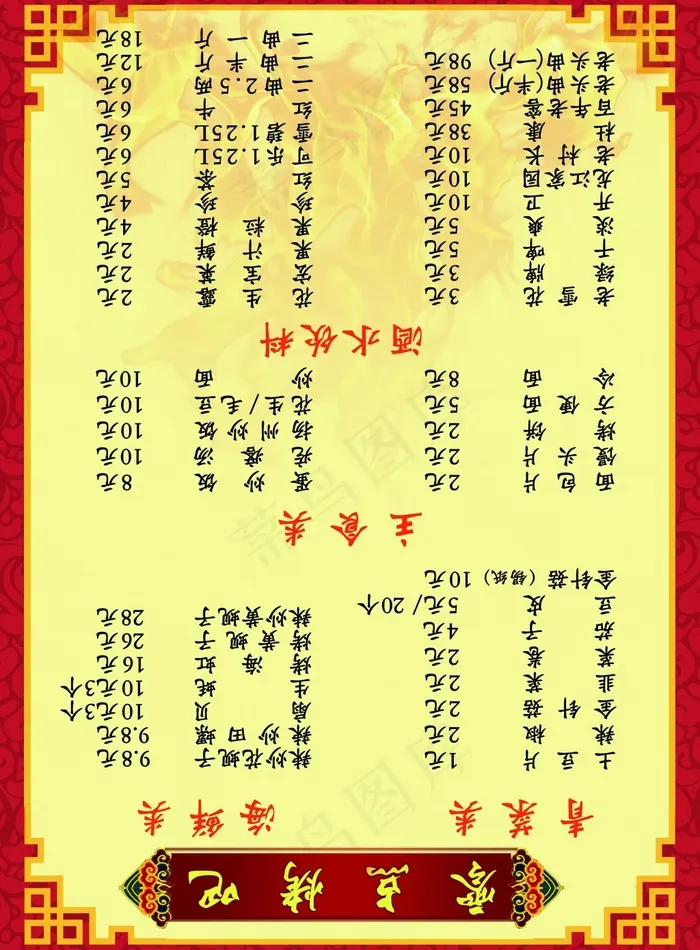 零点烤吧
青菜类
土豆片 1元
辣椒 2元
金针菇 2元
韭菜 2元
菜卷 2元
茄子 4元
豆皮 5元/20个
金针菇(锡纸)10元
海鲜类
辣炒花蚬子 9.8元
辣炒田螺 9.8元
扇贝 10元3个
生蚝 10元3个
烤海虹 16元
烤黄蚬子 26元
辣炒黄蚬子 28元
主食类
面包片 2元
馒头片 2元
烤饼 2元
方便面 5元
冷面 8元
蛋炒饭 8元
疙瘩汤 10元
扬州炒饭 10元
花生/毛豆 10元
炒面 10元
酒水饮料
老雪花 3元
绿牌 3元
干啤 5元
淡爽 5元
开卫 10元
龙江家园 10元
老村长 10元
杜康 38元
百年老窖 45元
老头曲(半斤) 58元
老头曲(一斤) 98元
花生露 2元
宏宝莱 2元
果汁鲜 2元
果粒橙 4元
珍珍 4元
红茶 5元
可乐1.25L 6元
雪碧1.25L 6元
红牛 6元
二曲2.5两 6元
二曲半斤 12元
二曲一斤 18元
菜鸟图库